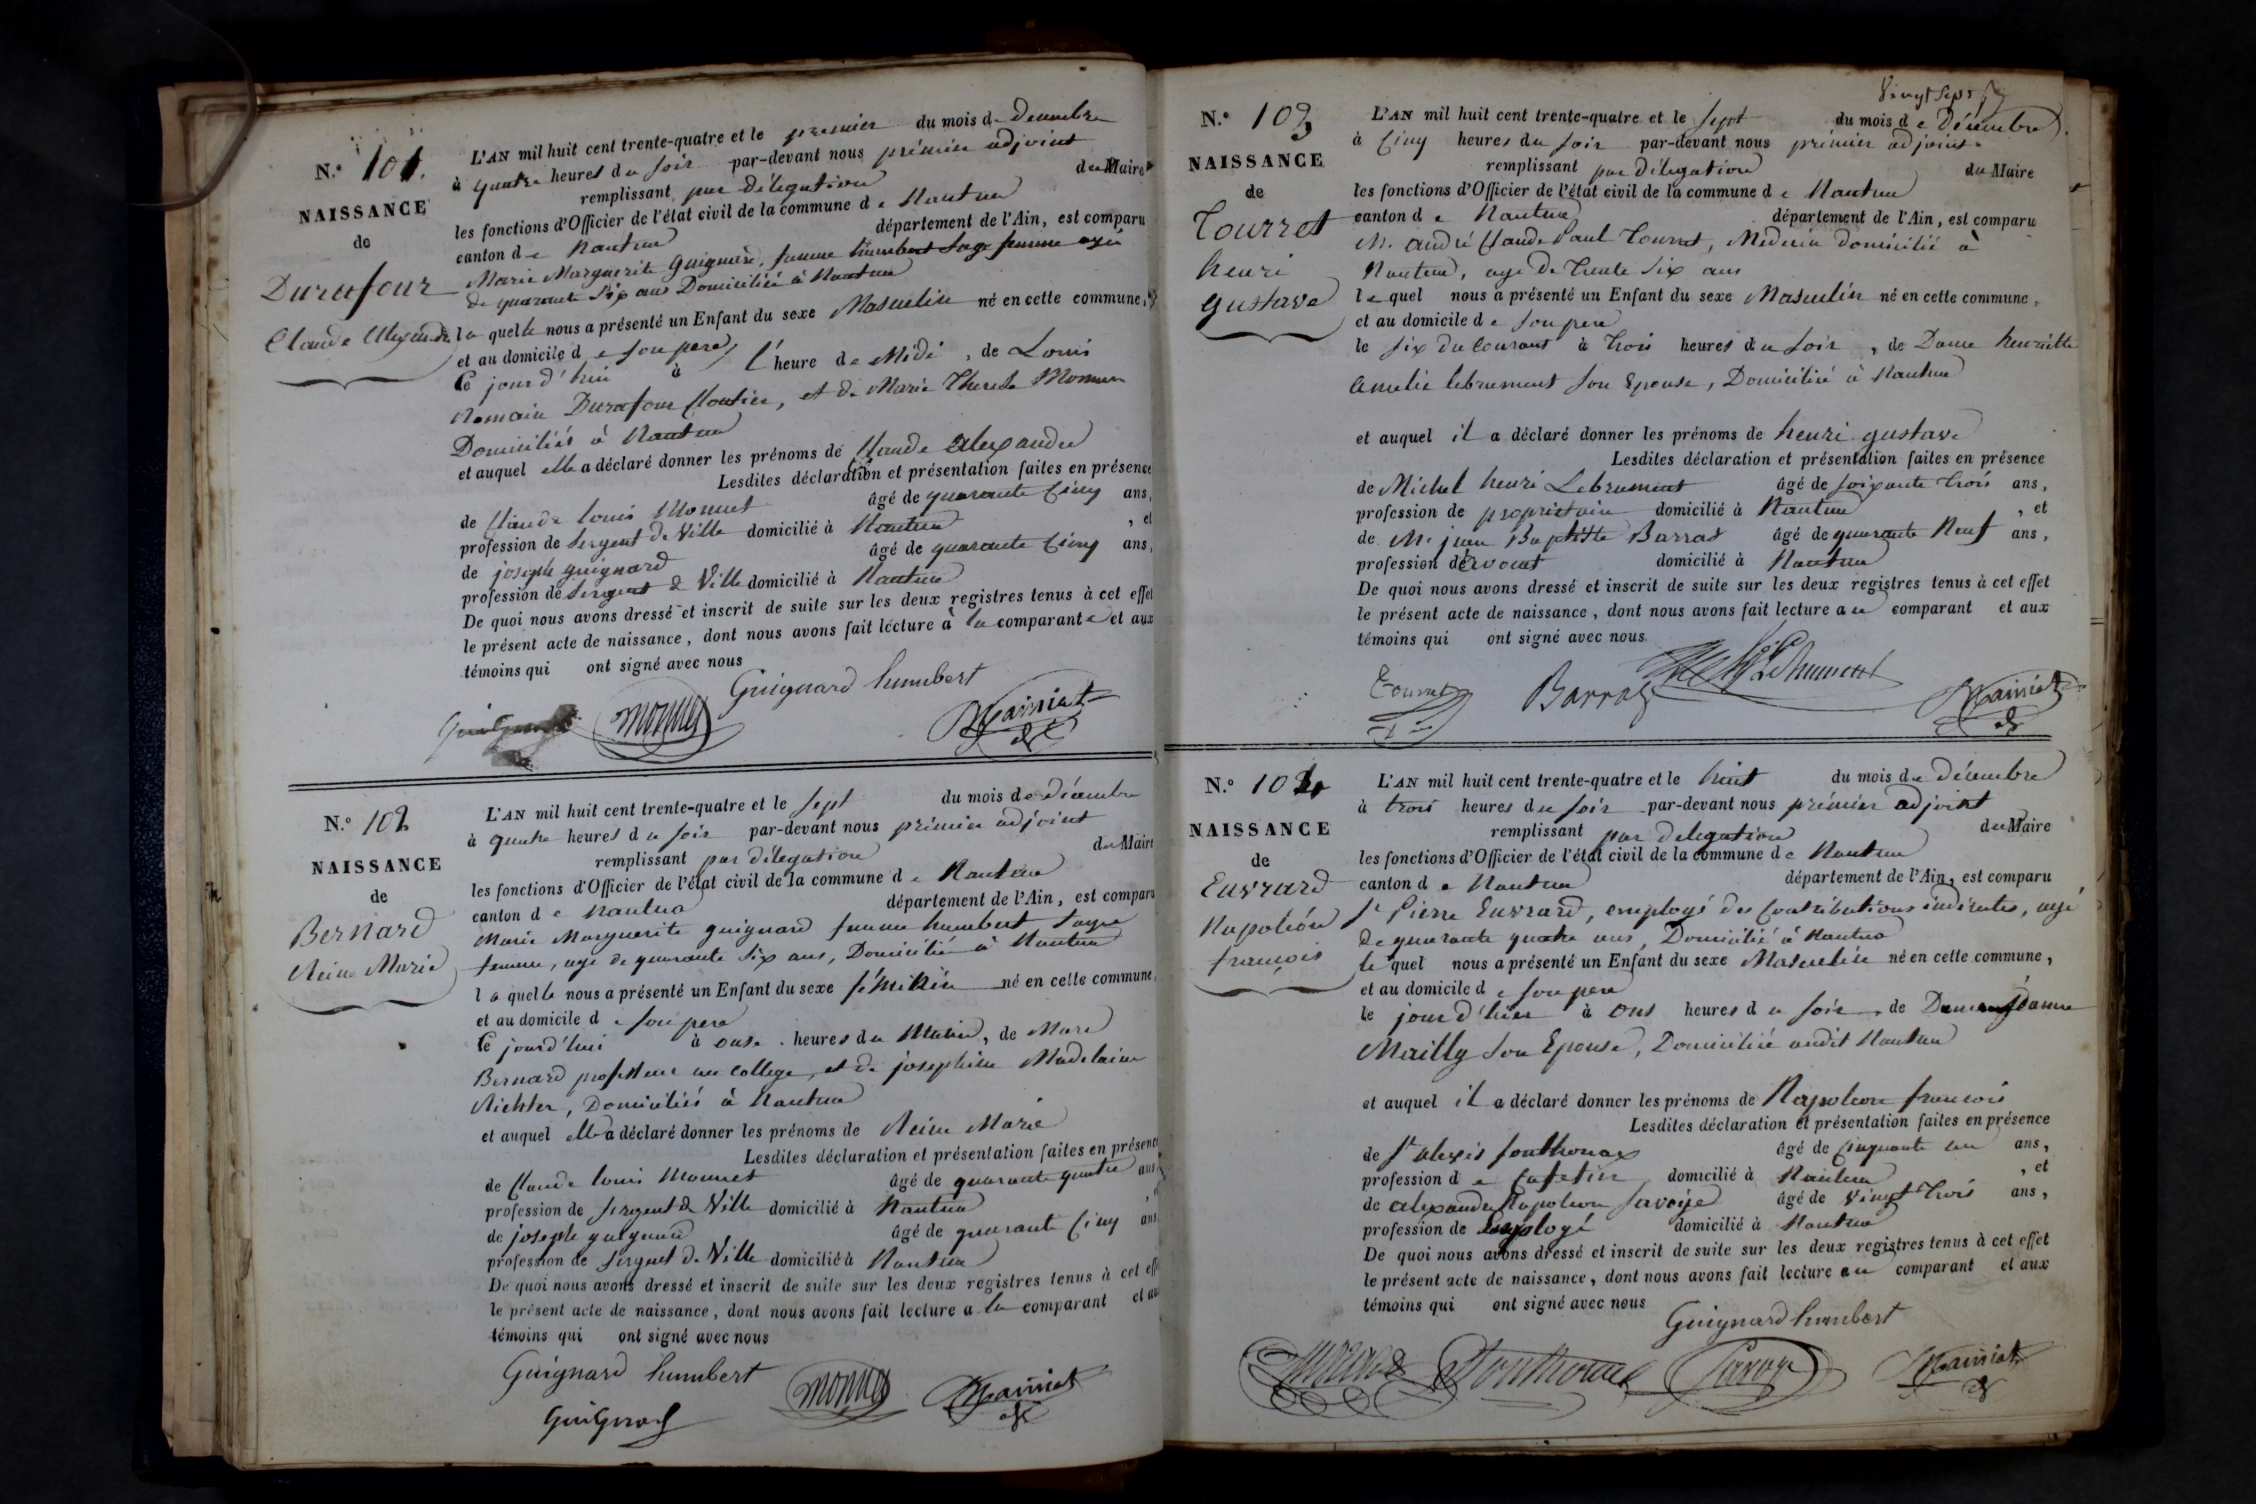 N.° 101.
NAISSANCE
de
Durafour
Claude Alexandre
L'AN mil huit cent trente-quatre et le premier du mois de decembre
à quatre heures du soir par-devant nous prémier adjoint
remplissant par délegation du Maire
les fonctions d'Officier de l'état civil de la commune de Nantua
canton de Nantua département de l'Ain, est comparu
Marie Marguerite Guignard, femme humbert sage femme agée
de quarante six ans Domiciliée à Nantua
laquelle nous a présenté un Enfant du sexe Masculin né en cette commune,
et au domicile de son pere
Ce jourd'hui à l'heure de Midi, de Louis
Romain Durafour Cloutier, et de Marie Therese
Domiciliés à Nantua
et auquel elle a déclaré donner les prénoms de Claude alexandre
Lesdites déclaration et présentation faites en présence
de Claude louis Monnet âgé de quarante cinq ans,
profession de Sergent de Ville domicilié à Nantua, et
de joseph guignard âgé de quarante cinq ans,
profession de Sergent de Ville domicilié à Nantua
De quoi nous avons dressé et inscrit de suite sur les deux registres tenus à cet effet
le présent acte de naissance, dont nous avons fait lecture à la comparante et aux
témoins qui ont signé avec nous
Guignard humbert
Guignard monnet Mainiat
N.° 102
NAISSANCE
de
Bernard
Reine Marie
L'AN mil huit cent trente-quatre et le sept du mois de décembre
à quatre heures du soir par-devant nous prémier adjoint
remplissant par délegation du Maire
les fonctions d'Officier de l'état civil de la commune de Nantua
canton de Nantua département de l'Ain, est comparu
Marie Marguerite guignard femme humbert sage
femme, agé de quarante six ans, Domiciliée à Nantua
laquelle nous a présenté un Enfant du sexe féminin né en cette commune,
et au domicile de son pere
Ce jourd'hui à onse heures du Matin, de Marc
Bernard professeur au College, et de josephine Madelaine
Richter, Domiciliés à Nantua
et auquel elle a déclaré donner les prénoms de Reine Marie
Lesdites déclaration et présentation faites en présence
de Claude louis Monnet âgé de quarante quatre ans
profession de sergent de Ville domicilié à Nantua
de joseph guignard âgé de quarante cinq ans
profession de sergent de Ville domicilié à Nantua
De quoi nous avons dressé et inscrit de suite sur les deux registres tenus à cet effet
le présent acte de naissance, dont nous avons fait lecture a la comparant et aux
témoins qui ont signé avec nous
Guignard humbert monnet Mainiat
Guignard
Vingt Sept
N.° 103
NAISSANCE
de
Tourret
henri
gustave
L'AN mil huit cent trente-quatre et le sept du mois de décembre
à Cinq heures du soir par-devant nous prémier adjoint
remplissant par délegation du Maire
les fonctions d'Officier de l'état civil de la commune de Nantua
canton de Nantua département de l'Ain, est comparu
M. andré Claude Paul Tourret, Médecin domicilié à
Nantua, agé de trente six ans
lequel nous a présenté un Enfant du sexe Masculin né en cette commune,
et au domicile de son pere
le six du courant à trois heures du soir, de Dame henriette
amelie lebrument son Epouse, Domiciliée à Nantua
et auquel il a déclaré donner les prénoms de henri gustave
Lesdites déclaration et présentation faites en présence
de Michel henri Lebrument âgé de soixante trois ans,
profession de proprietaire domicilié à Nantua, et
de M. jean Baptiste Barras âgé de quarante Neuf ans,
profession d'avouat domicilié à Nantua
De quoi nous avons dressé et inscrit de suite sur les deux registres tenus à cet effet
le présent acte de naissance, dont nous avons fait lecture au comparant et aux
témoins qui ont signé avec nous
Tourret Barras Lebrument Mainiat
N.° 104
NAISSANCE
de
Euvrard
Napoléon
françois
L'AN mil huit cent trente-quatre et le huit du mois de décembre
à trois heures du soir par-devant nous prémier adjoint
remplissant par delegation du Maire
les fonctions d'Officier de l'état civil de la commune de Nantua
canton de Nantua département de l'Ain, est comparu
Sr Pierre Euvrard, employé des Contributions indirectes, agé
de quarante quatre ans, Domicilié à Nantua
lequel nous a présenté un Enfant du sexe Masculin né en cette commune,
et au domicile de son pere
le jour d'hier à ons heures du soir, de
Mailly son Epouse, Domiciliée audit Nantua
et auquel il a déclaré donner les prénoms de Napoleon francois
Lesdites déclaration et présentation faites en présence
de Sr alexis fonthonax âgé de Cinquante un ans,
profession de Cafetier domicilié à Nantua, et
de alexandre Napoleon Savoye âgé de Vingt trois ans,
profession de Employé domicilié à Nantua
De quoi nous avons dressé et inscrit de suite sur les deux registres tenus à cet effet
le présent acte de naissance, dont nous avons fait lecture au comparant et aux
témoins qui ont signé avec nous
Guignard humbert
Euvrard Savoye Mainiat